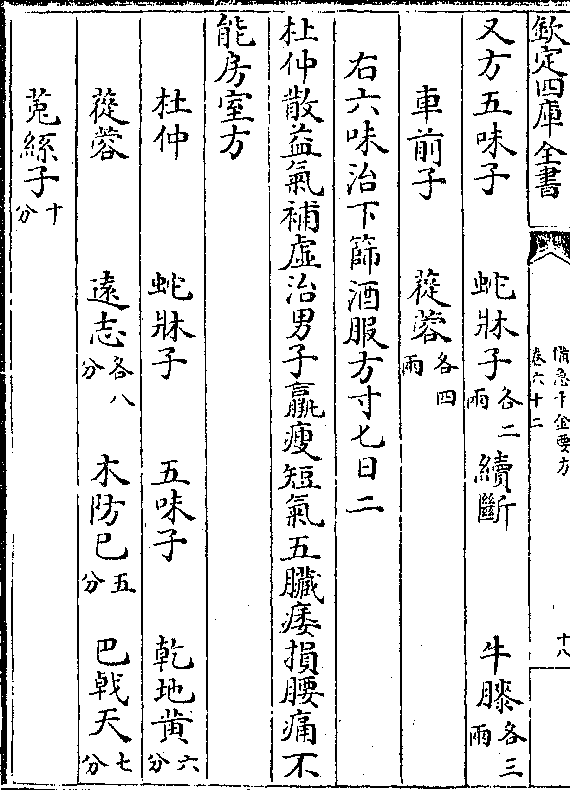 欽定四庫全書
備急千金要方
卷六十二
十八
又方五味子 蛇牀子各二兩 續斷 牛膝各三兩
車前子 蓯蓉各四兩
右六味治下篩酒服方寸匕日二
杜仲散益氣補虛治男子羸瘦短氣五臟痿損腰痛不
能房室方
杜仲 蛇牀子 五味子 乾地黄六分
蓯蓉 遠志各八分 木防已五分 巴戟天七分
菟絲子十分